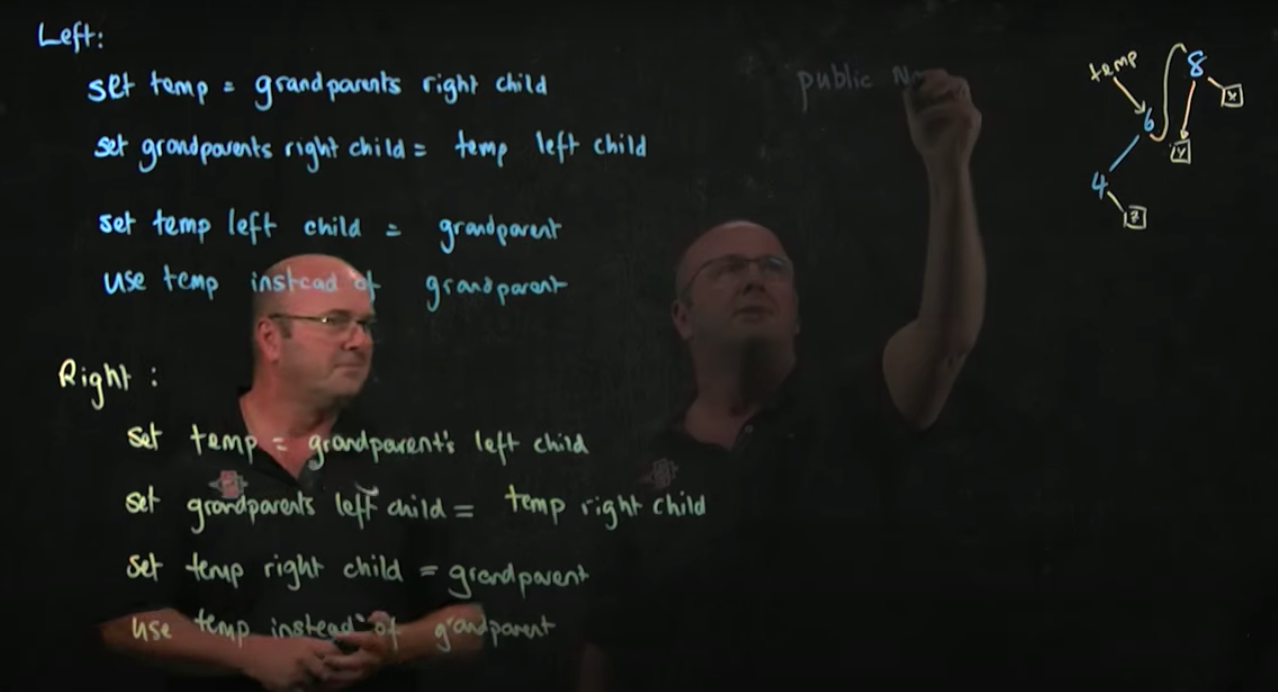 Left:
set temp = grandparents right child
set grandparents right child = temp left child
set temp left child = grandparent
use temp instead of grandparent
Right :
set temp = grandparent's left child
set grandparents left child = temp right child
set temp right child = grandparent
use temp instead of grandparent
public
temp
8
x
6
y
4
z